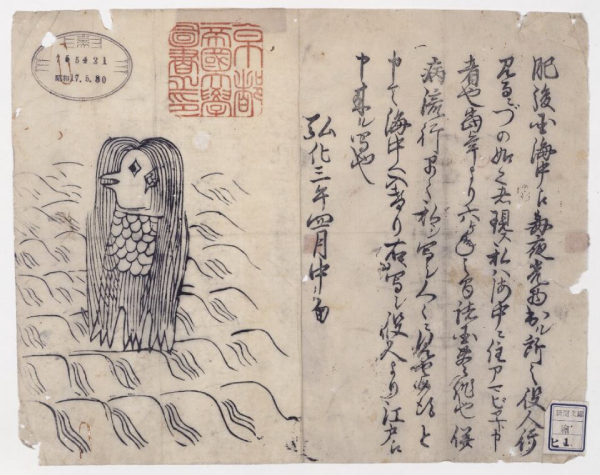 肥後国海中え毎夜光物出ル所之役人行
見るニづの如之者現ス私ハ海中ニ住アマビヱト申
者也当年より六ヶ年之間諸国豊作也併
病流行早々私ヲ写シ人々ニ見セ候得と
申て海中へ入けり右写シ役人より江戸え
申来ル写也
弘化三年四月中旬
京都
帝國大學
圖書之印
昭和17.5.30